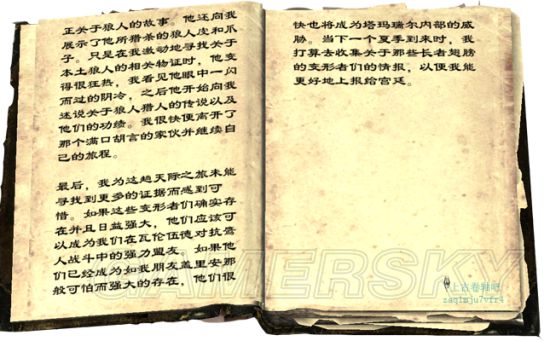 正关于狼人的故事。他还向我
展示了他所猎杀的狼人皮和爪
子。只是在我激动地寻找关于
本土狼人的相关物证时，他变
得很狂热，我看见他眼中一闪
而过的阴冷，之后他开始向我
述说关于狼人猎人的传说以及
他们的功绩。我很快便离开了
那个满口胡言的家伙并继续自
己的旅程。
最后，我为这趟天际之旅未能
寻找到更多的证据而感到可
惜。如果这些变形者们确实存
在并且日益强大，他们应该可
以成为我们在瓦伦伍德对抗高
人战斗中的强力盟友。如果他
们已经成为如我朋友盖里安那
般可怕而强大的存在，他们很
快也将成为塔玛瑞尔内部的威
胁。当下一个夏季到来时，我
打算去收集关于那些长者翅膀
的变形者们的情报，以便我能
更好地上报给宫廷。
GAMERSKY
上古卷轴吧
zaq1mju7vfr4